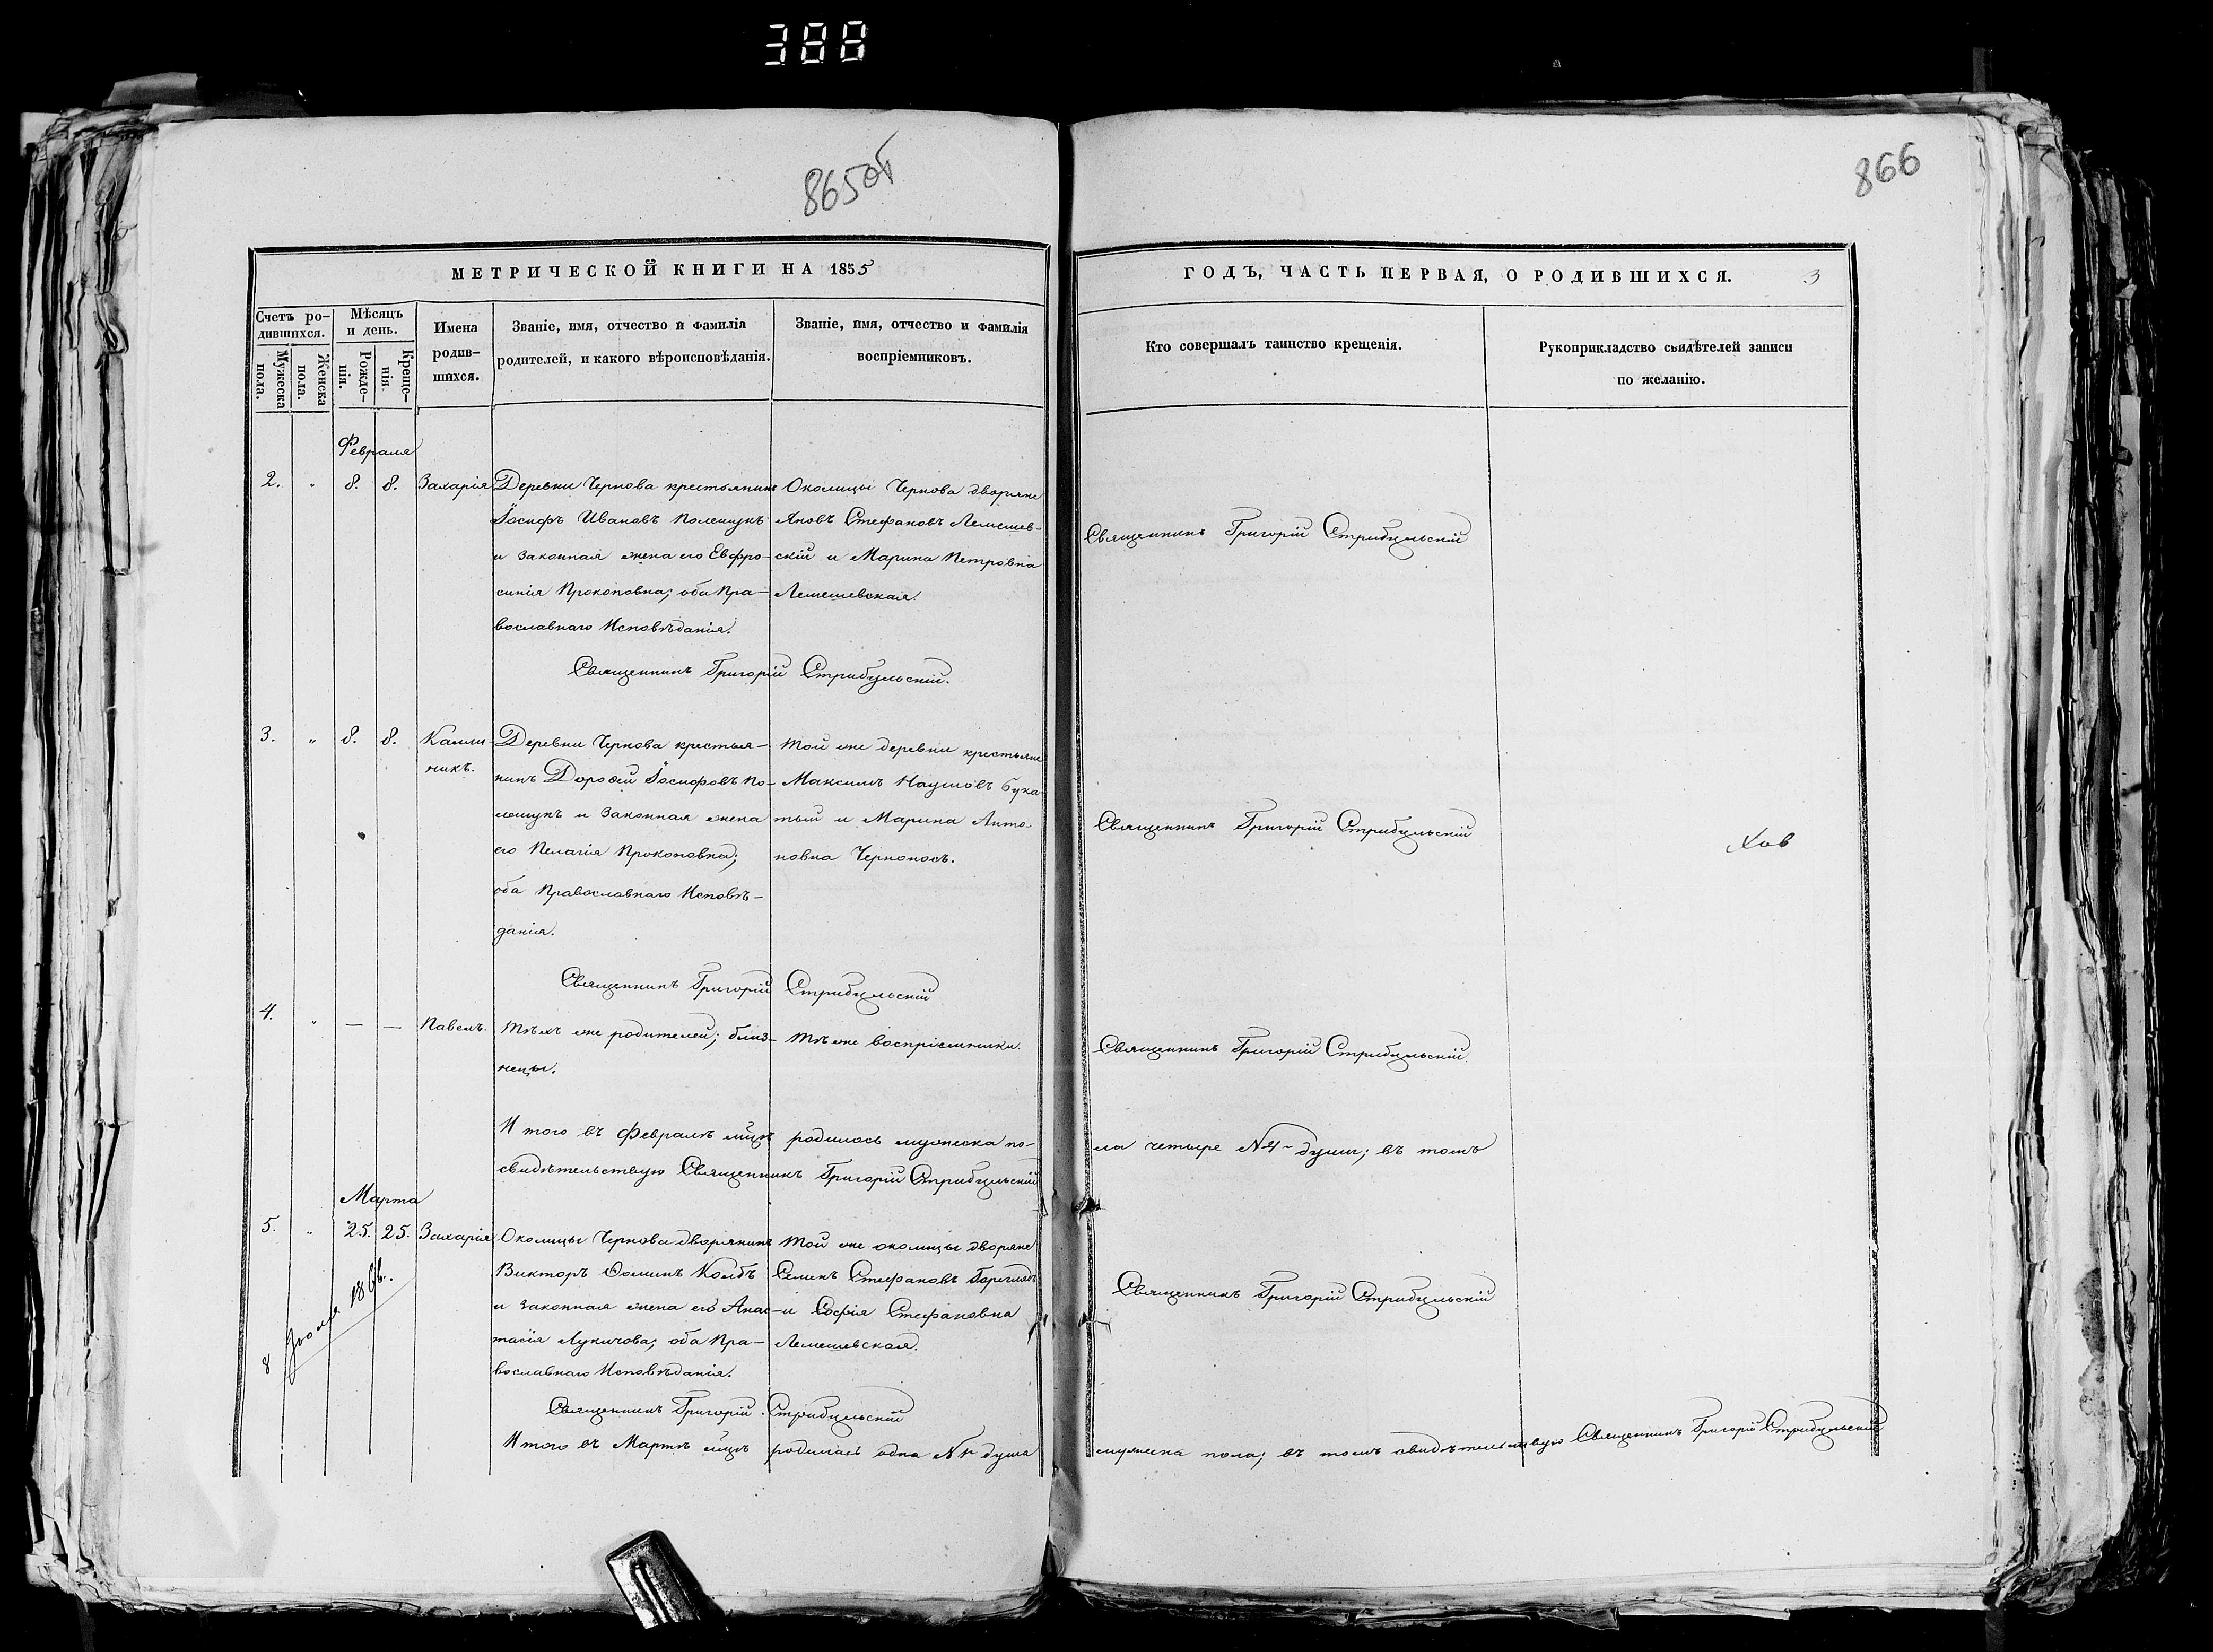 388
865об
866
МЕТРИЧЕСКОЙ КНИГИ НА 1855
ГОДЪ, ЧАСТЬ ПЕРВАЯ, О РОДИВШИХСЯ. 3
Счетъ ро-
дившихся.
Мужеска
пола.
Женска
пола.
Мѣсяцъ
и день.
Рожде-
нія.
Креще-
нія.
Имена
родив-
шихся.
Званіе, имя, отчество и фамилія
родителей, и какого вѣроисповѣданія.
Званіе, имя, отчество и фамилія
воспріемниковъ.
Кто совершалъ таинство крещенія.
Рукоприкладство свидѣтелей записи
по желанію.
Февраля
2. " 8. 8. Захарія
Деревни Чернова крестьянинъ
Іосифъ Ивановъ Полещукъ
и законная жена его Евфро-
синія Прокоповна; оба Пра-
вославнаго Исповѣданія.
Околицы Чернова дворяне
Яковъ Стефановъ Лемешев-
скій и Марина Петровна
Лемешевская.
Священникъ Григорій Стрибульскій
Священникъ Григорій Стрибульскій.
3. " 8. 8. Калли-
никъ.
Деревни Чернова крестья-
нинъ Дороѳей Іосифовъ По-
лещукъ и законная жена
его Пелагія Прокоповна;
оба Православнаго Исповѣ-
данія.
Той же деревни крестьяне
Максимъ Наумовъ Бука-
тый и Марина Анто-
новна Черноносъ.
Священникъ Григорій Стрибульскій
Священникъ Григорій Стрибульскій
4. " — — Павелъ.
Тѣхъ же родителей; близ-
нецы.
Тѣ же воспріемники.
Священникъ Григорій Стрибульскій
Итого въ Февралѣ мѣцѣ родилось мужеска по-
ла четыре N 4 души; въ томъ
свидѣтельствую Священникъ Григорій Стрибульскій
Марта
5. " 25. 25. Захарія
Околицы Чернова дворянинъ
Викторъ Ѳоминъ Колбъ
и законная жена его Анас-
тасія Лукичова; оба Пра-
вославнаго Исповѣданія.
Той же околицы дворяне
Семенъ Стефановъ Гореглядъ
и Софія Стефановна
Лемешевская.
Священникъ Григорій Стрибульскій
8
1866.
Священникъ Григорій Стрибульскій
Итого въ Мартѣ мѣцѣ родилась одна N 1 душа
мужеска пола; въ томъ свидѣтельствую Священникъ Григорій Стрибульскій